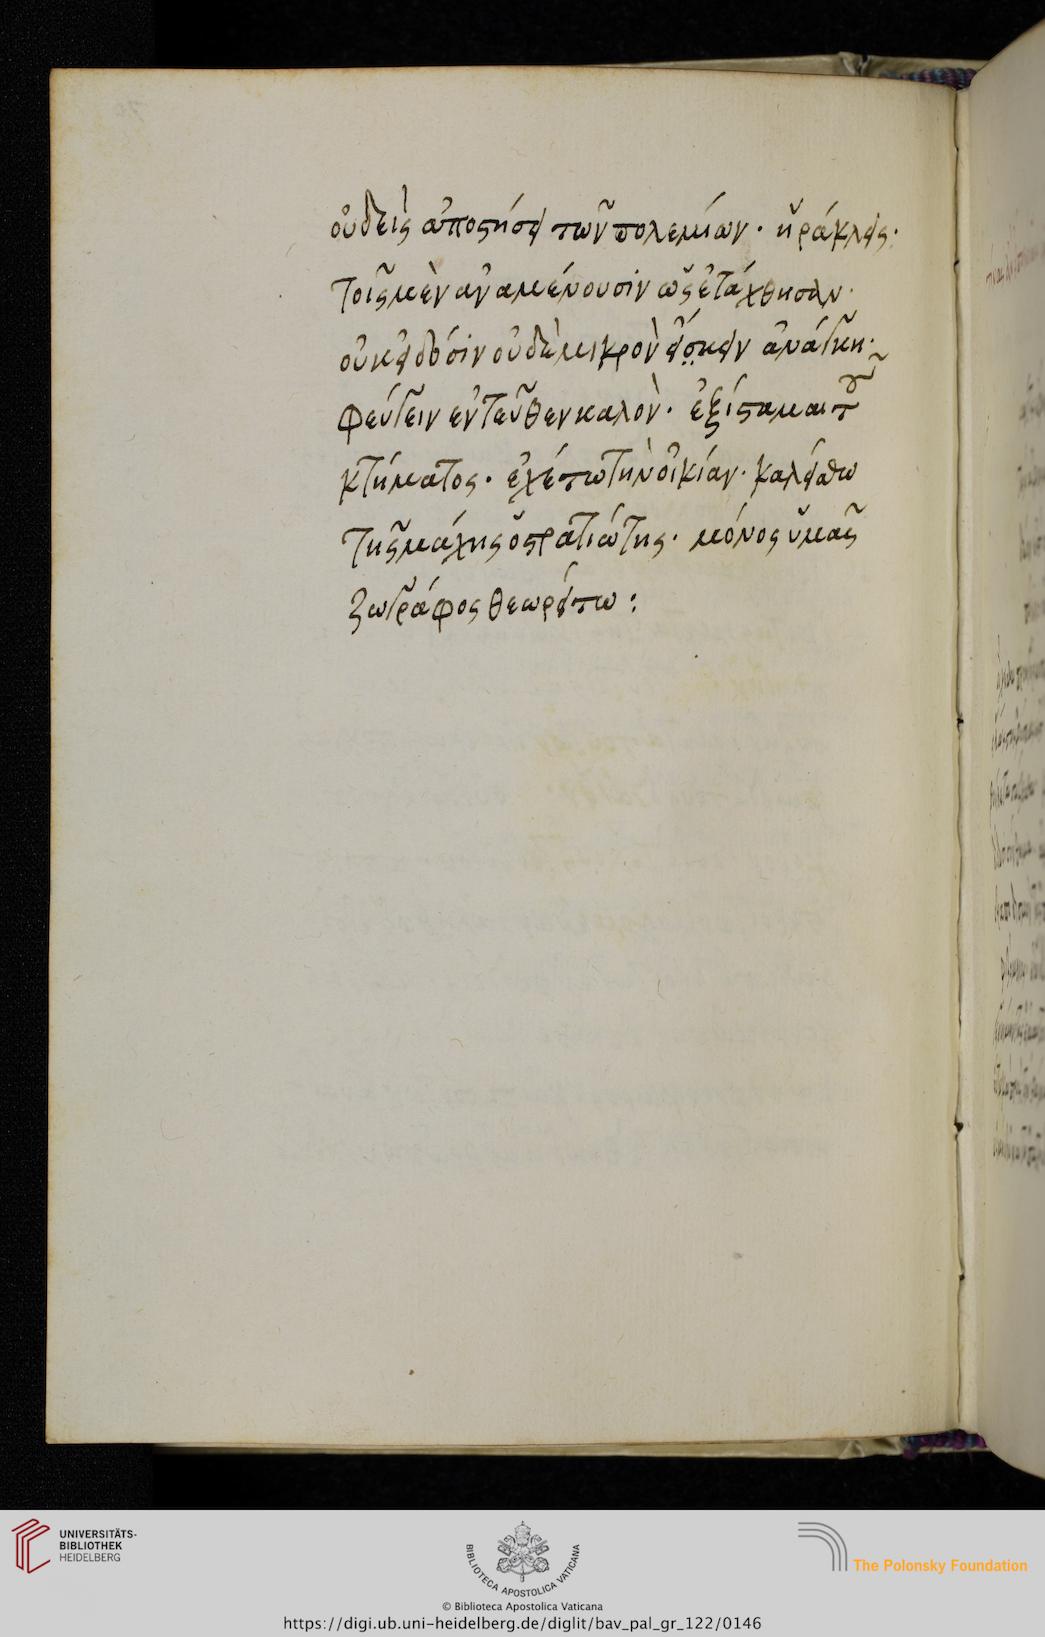 οὐδεὶς ἀποστήσει τῶν πολεμίων. ἡράκλεις.
τοῖς μὲν ἀναμένουσιν ὡς ἐτάχθησαν.
οὐκ οὐδὲ μικρὸν ἀνάγκη.
φεύγειν ἐντεῦθεν καλὸν. ἐξίσταμαι τοῦ
κτήματος. ἐχέτω τὴν οἰκίαν.
τῆς μάχης ὁ στρατιώτης. μόνος ὑμᾶς
ζωγράφος θεωρείτω:
UNIVERSITÄTS-
BIBLIOTHEK
HEIDELBERG
BIBLIOTECA APOSTOLICA VATICANA
The Polonsky Foundation
© Biblioteca Apostolica Vaticana
https://digi.ub.uni-heidelberg.de/diglit/bav_pal_gr_122/0146